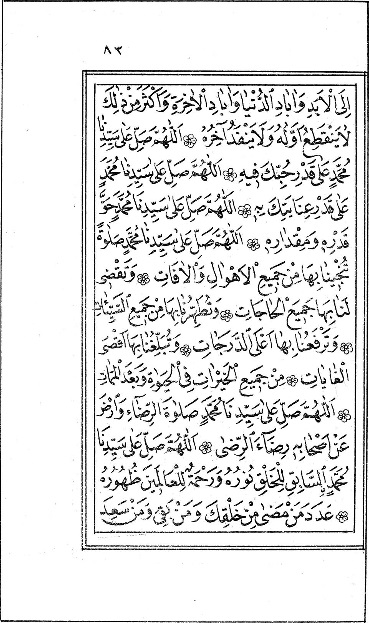 ٨٢
اِلَى الْاَبَدِ وَاٰبَادِ الدُّنْيَا وَاٰبَادِ الْاٰخِرَةِ وَاَكْثَرَ مِنْ ذٰلِكَ
لَا يَنْقَطِعُ اَوَّلُهُ وَلَا يَنْفَدُ اٰخِرُهُ ۞ اَللّٰهُمَّ صَلِّ عَلٰى سَيِّدِنَا
مُحَمَّدٍ عَلٰى قَدْرِ حُبِّكَ فِيهِ ۞ اَللّٰهُمَّ صَلِّ عَلٰى سَيِّدِنَا مُحَمَّدٍ
عَلٰى قَدْرِ عِنَايَتِكَ بِهِ ۞ اَللّٰهُمَّ صَلِّ عَلٰى سَيِّدِنَا مُحَمَّدٍ حَقَّ
قَدْرِهِ وَمِقْدَارِهِ ۞ اَللّٰهُمَّ صَلِّ عَلٰى سَيِّدِنَا مُحَمَّدٍ صَلٰوةً
تُنْجِينَا بِهَا مِنْ جَمِيعِ الْاَهْوَالِ وَالْاٰفَاتِ ۞ وَتَقْضِى
لَنَا بِهَا جَمِيعَ الْحَاجَاتِ ۞ وَتُطَهِّرُنَا بِهَا مِنْ جَمِيعِ السَّيِّئَاتِ
۞ وَتَرْفَعُنَا بِهَا اَعْلَى الدَّرَجَاتِ ۞ وَتُبَلِّغُنَا بِهَا اَقْصَى
الْغَايَاتِ ۞ مِنْ جَمِيعِ الْخَيْرَاتِ فِى الْحَيٰوةِ وَبَعْدَ الْمَمَاتِ
۞ اَللّٰهُمَّ صَلِّ عَلٰى سَيِّدِنَا مُحَمَّدٍ صَلَاوةَ الرِّضَاءِ وَارْضَ
عَنْ اَصْحَابِهِ رِضَاءَ الرِّضٰى ۞ اَللّٰهُمَّ صَلِّ عَلٰى سَيِّدِنَا
مُحَمَّدٍ اَلسَّابِقِ لِلْخَلْقِ نُورُهُ وَرَحْمَةٌ لِلْعَالَمِينَ ظُهُورُهُ
۞ عَدَدَ مَنْ مَضٰى مِنْ خَلْقِكَ وَمَنْ بَقِىَ وَمَنْ سَعِدَ